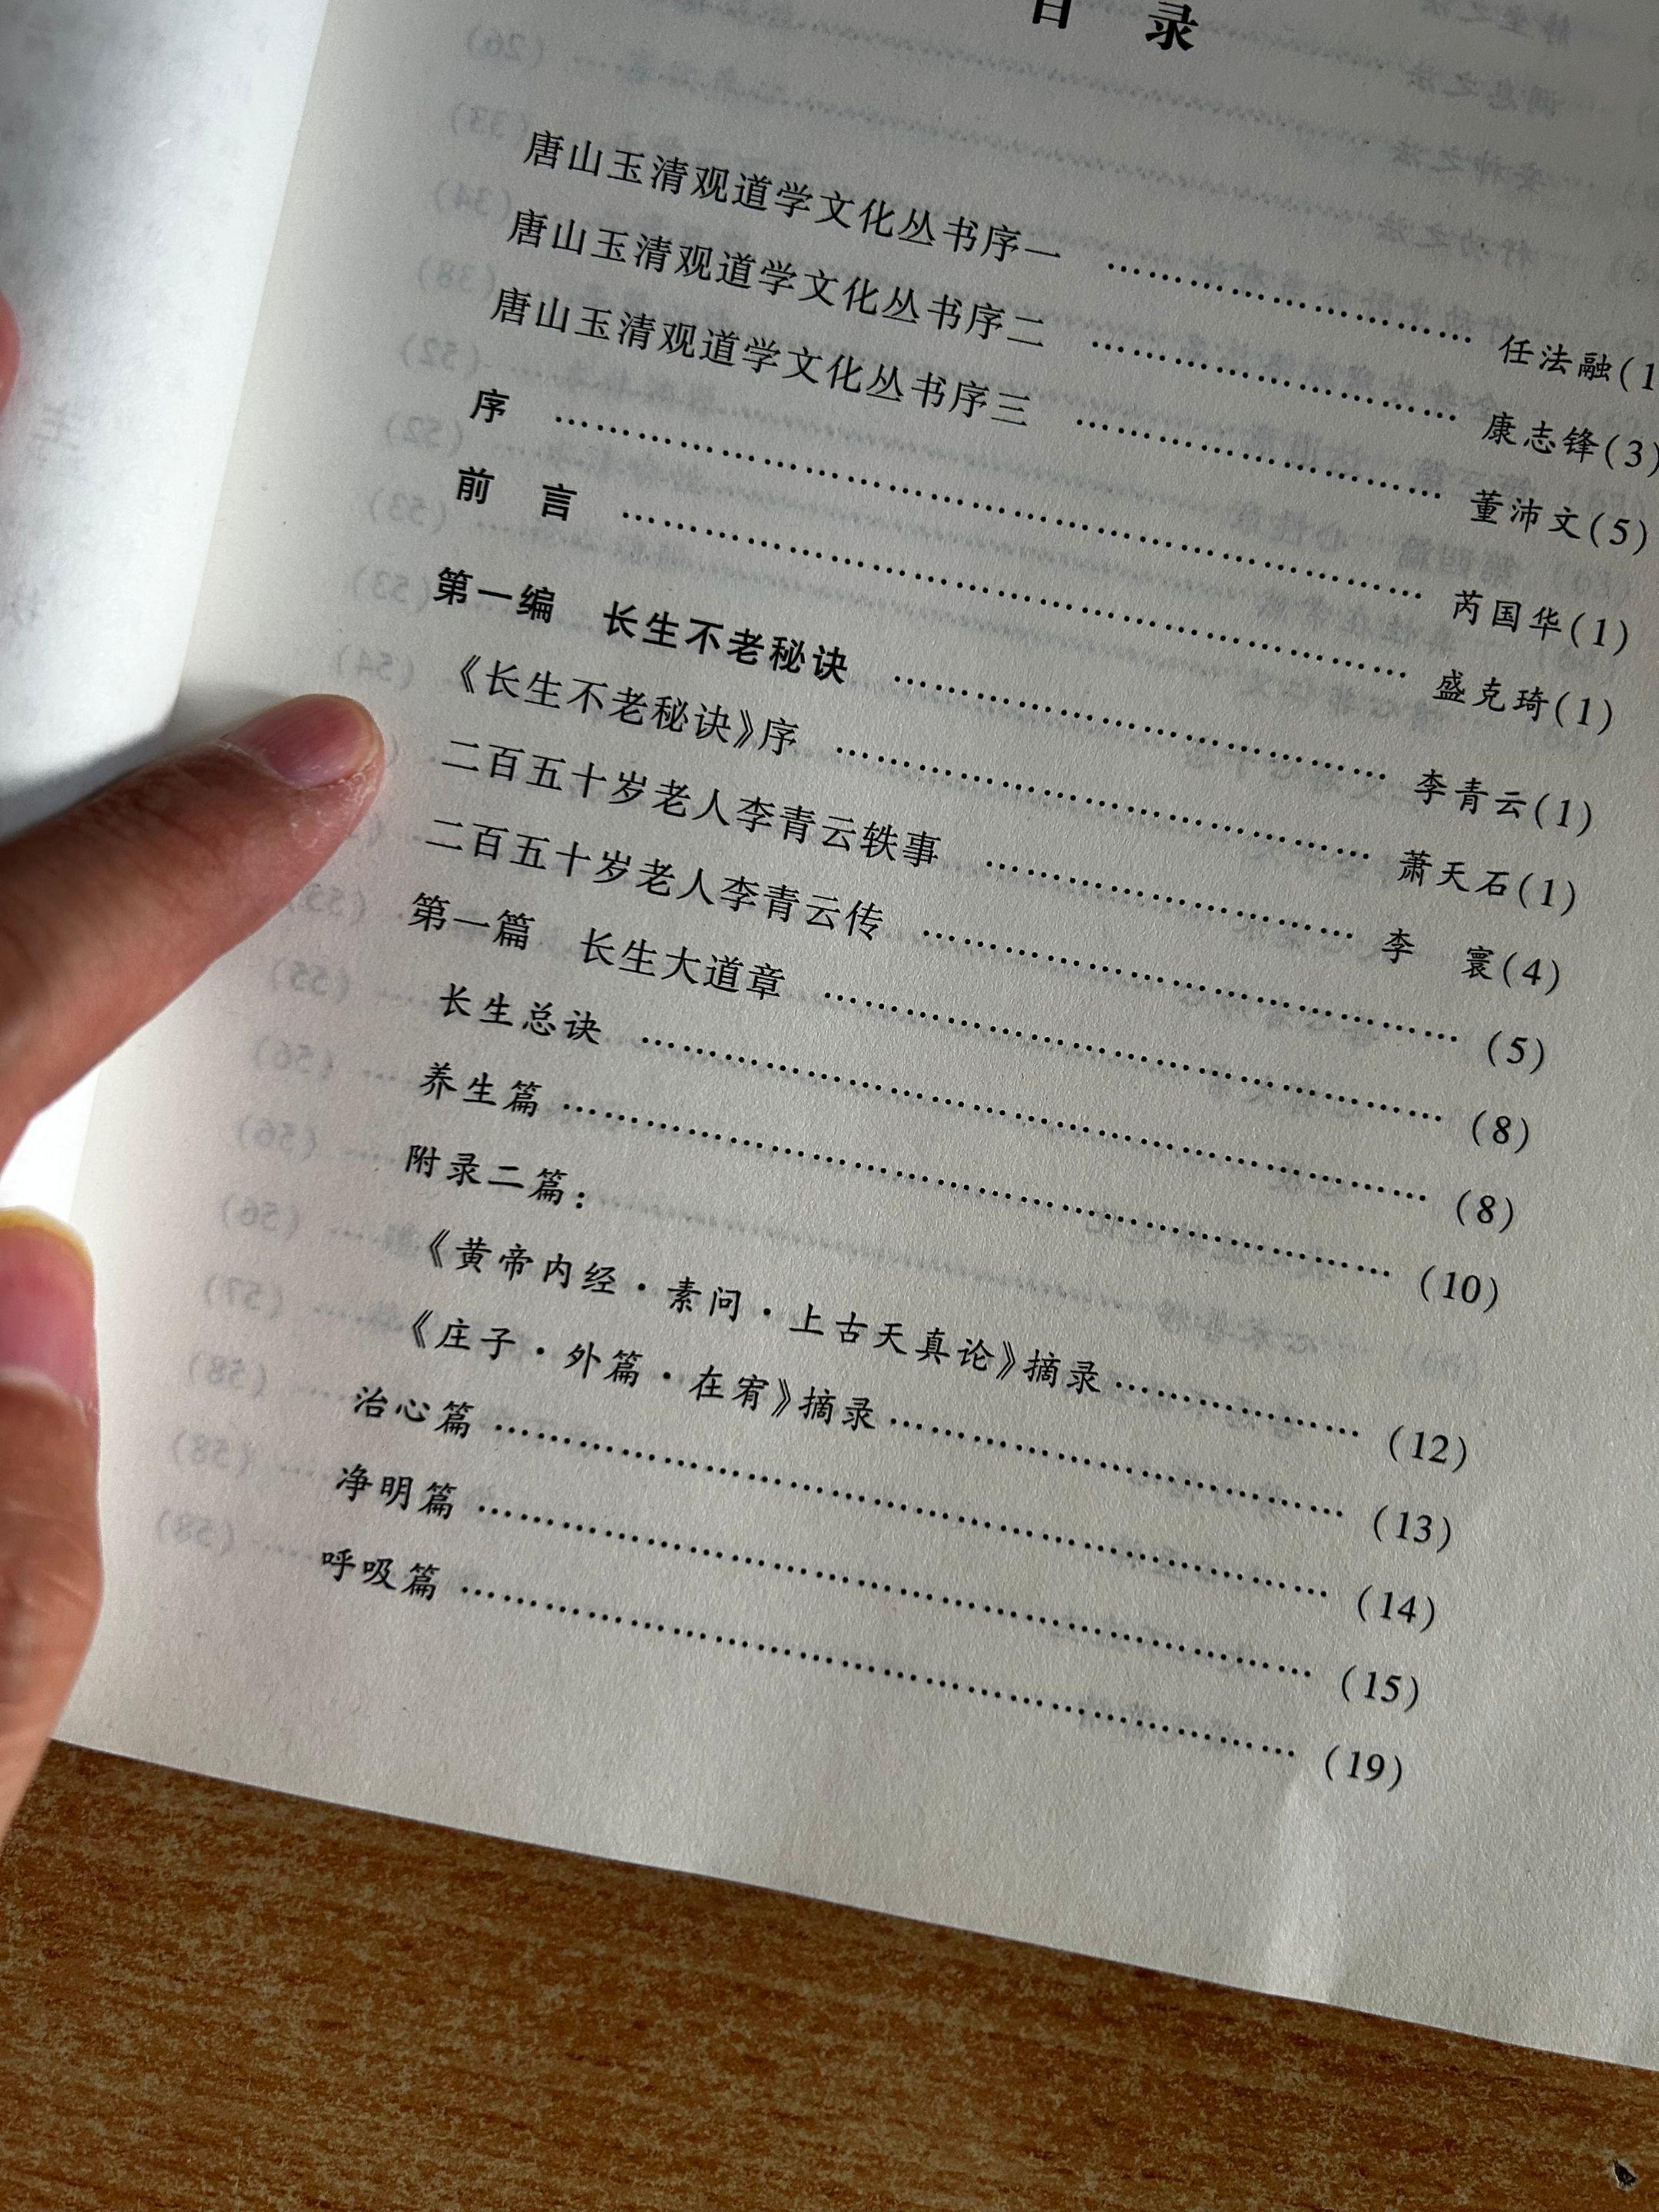 目 录
唐山玉清观道学文化丛书序一 …… 任法融(1
唐山玉清观道学文化丛书序二 …… 康志锋(3)
唐山玉清观道学文化丛书序三 …… 董沛文(5)
序 …… 芮国华(1)
前 言 …… 盛克琦(1)
第一编 长生不老秘诀 …… 李青云(1)
《长生不老秘诀》序 …… 萧天石(1)
二百五十岁老人李青云轶事 …… 李 寰(4)
二百五十岁老人李青云传 …… (5)
第一篇 长生大道章 …… (8)
长生总诀 …… (8)
养生篇 …… (10)
附录二篇：
《黄帝内经·素问·上古天真论》摘录 …… (12)
《庄子·外篇·在宥》摘录 …… (13)
治心篇 …… (14)
净明篇 …… (15)
呼吸篇 …… (19)